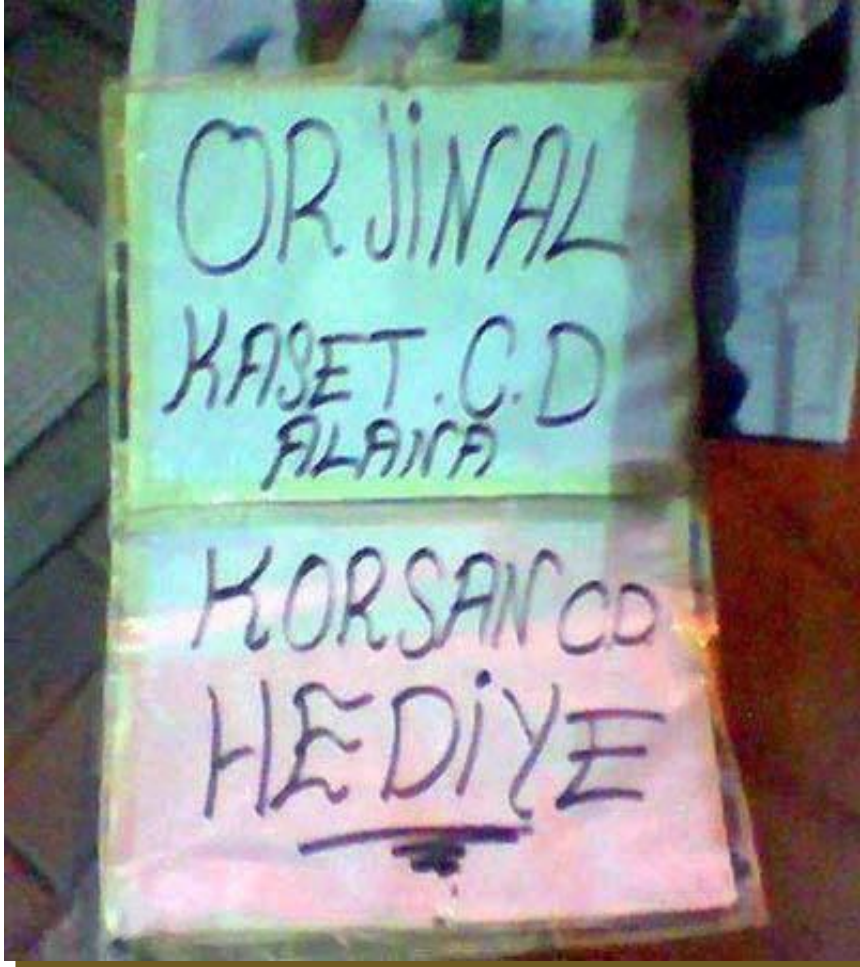 ORJİNAL
KASET.C.D
ALANA
KORSAN CD
HEDİYE